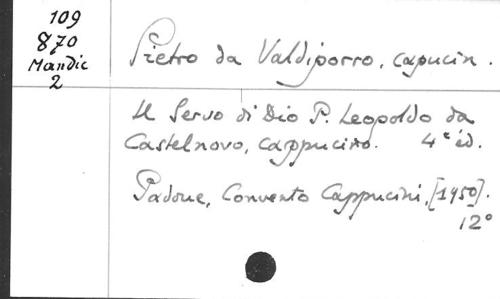 109
870
Mandic
2
Pietro da Valdiporro, capucin.
Il Servo di Dio P. Leopoldo da
Castelnovo, cappucino. 4e éd.
Padoue, Convento Cappucini, [1950].
12°